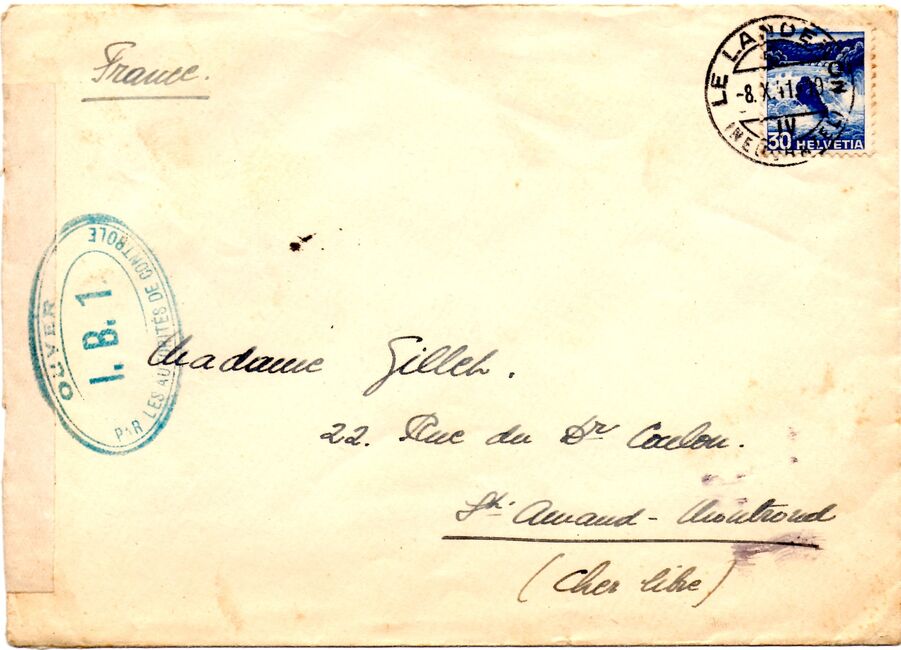 France.
LE LANDERON
-8.X.41.
IV
(NEUCHATEL)
30 HELVETIA
OUVERT
PAR LES AUTORITÉS DE CONTROLE
I. B. 1.
Madame Gillet.
22. Rue du Dr Coulon.
St. Amand-Montrond
(Cher libre)